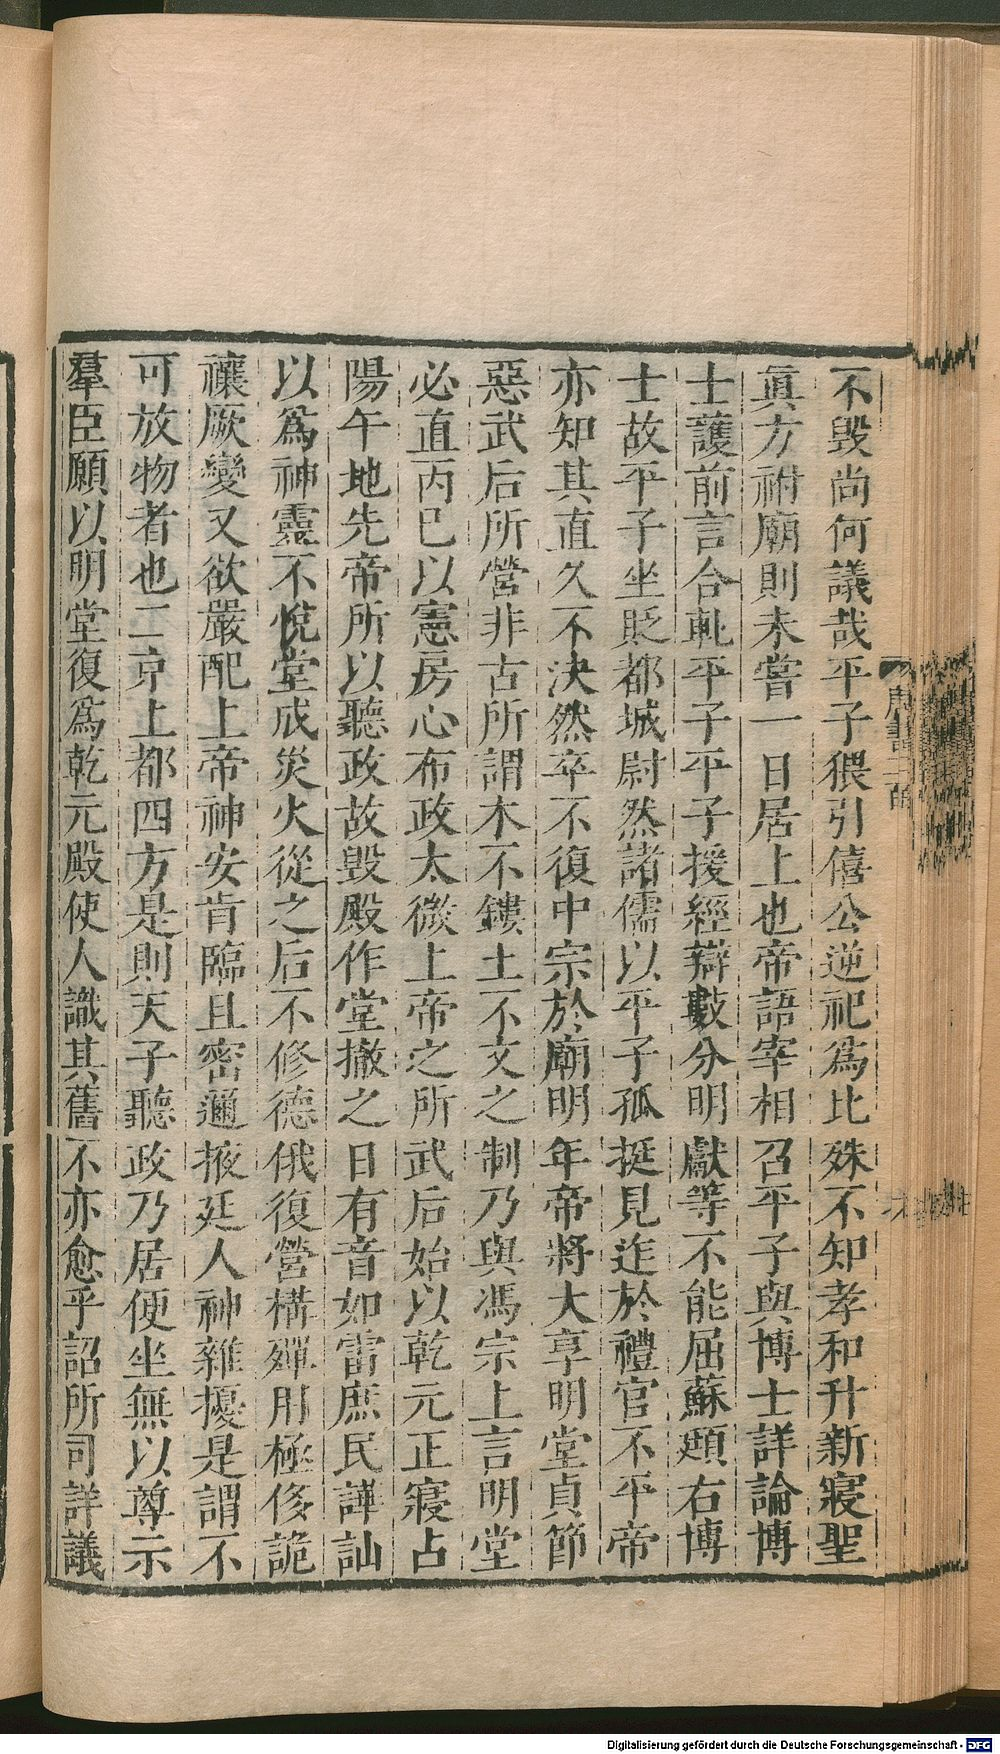 不毀尚何議哉平子猥引僖公逆祀爲比殊不知孝和升新寢聖
眞方祔廟則未嘗一日居上也帝語宰相召平子與博士詳論博
士護前言合軋平子平子援經辯數分明獻等不能屈蘇頲右博
士故平子坐貶都城尉然諸儒以平子孤挺見迮於禮官不平帝
亦知其直久不決然卒不復中宗於廟明年帝將大享明堂貞節
惡武后所營非古所謂木不鏤土不文之制乃與馮宗上言明堂
必直丙巳以憲房心布政太微上帝之所武后始以乾元正寢占
陽午地先帝所以聽政故毀殿作堂撤之日有音如雷庶民譁訕
以爲神靈不悅堂成災火從之后不修德俄復營構殫用極侈詭
禳厥變又欲嚴配上帝神安肯臨且密邇掖廷人神雜擾是謂不
可放物者也二京上都四方是則天子聽政乃居便坐無以尊示
羣臣願以明堂復爲乾元殿使人識其舊不亦愈乎詔所司詳議
唐書二百
Digitalisierung gefördert durch die Deutsche Forschungsgemeinschaft - DFG